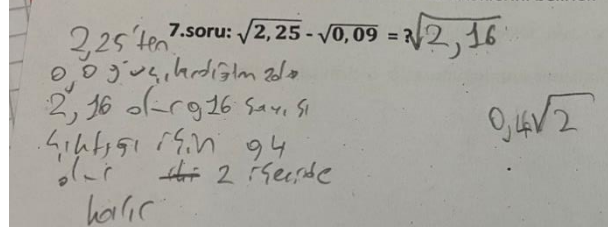 7.soru: √2,25 - √0,09 = ? √2,16
2,25'ten
0,09'u çıkardığımızda
2,16 olur 16 sayısı
çıktığı için 04
olur 2 içeride
kalır
0,4√2